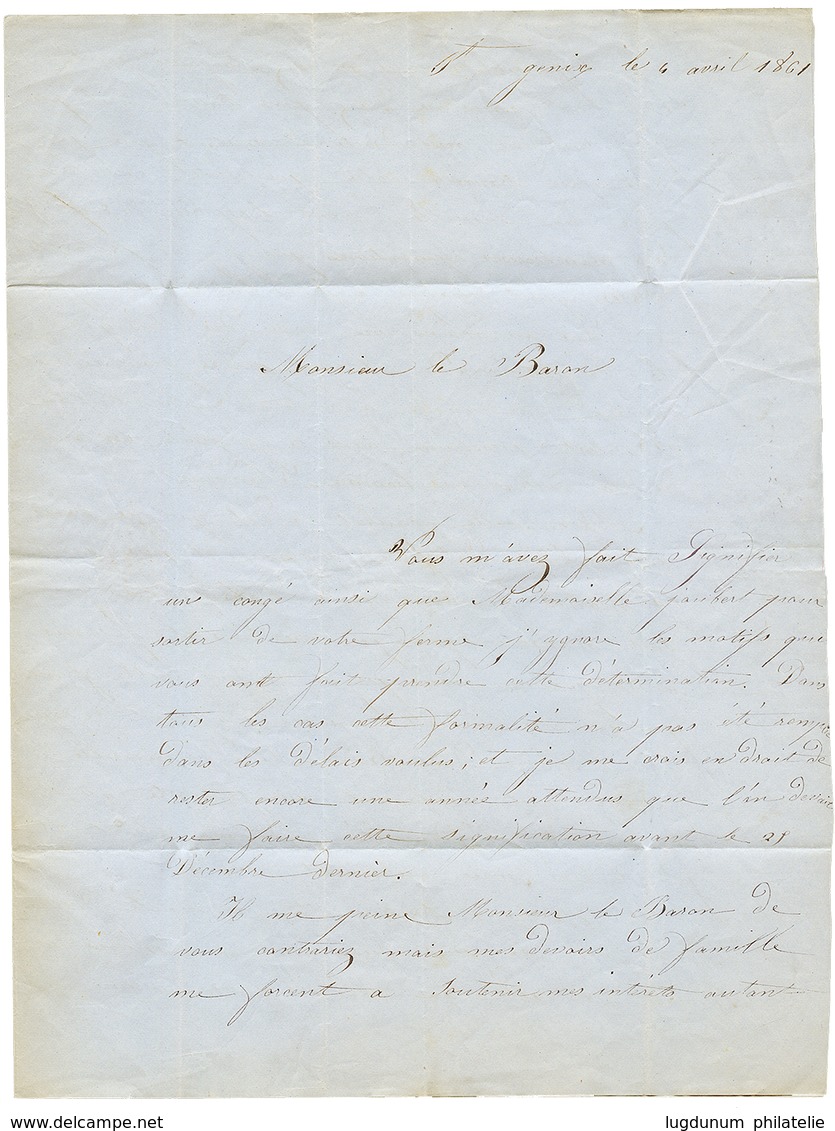 St genix le 6 avril 1861
Monsieur le Baron
Vous m'avez fait Signifier
un congé ainsi que Mademoiselle joubert pour
sortir de votre ferme j'ygnore les motifs qui
vous ont fait prendre cette détermination. Dans
tous les cas cette formalité n'a pas été remplie
dans les Délais voulus; et je me crois en droit de
rester encore une année attendus que l'on devait
me faire cette signification avant le 25
Décembre dernier.
Il me peine Monsieur le Baron de
vous contrariez mais mes devoirs de famille
me forcent a Soutenir mes intérets autant
delcampe.net
lugdunum philatelie